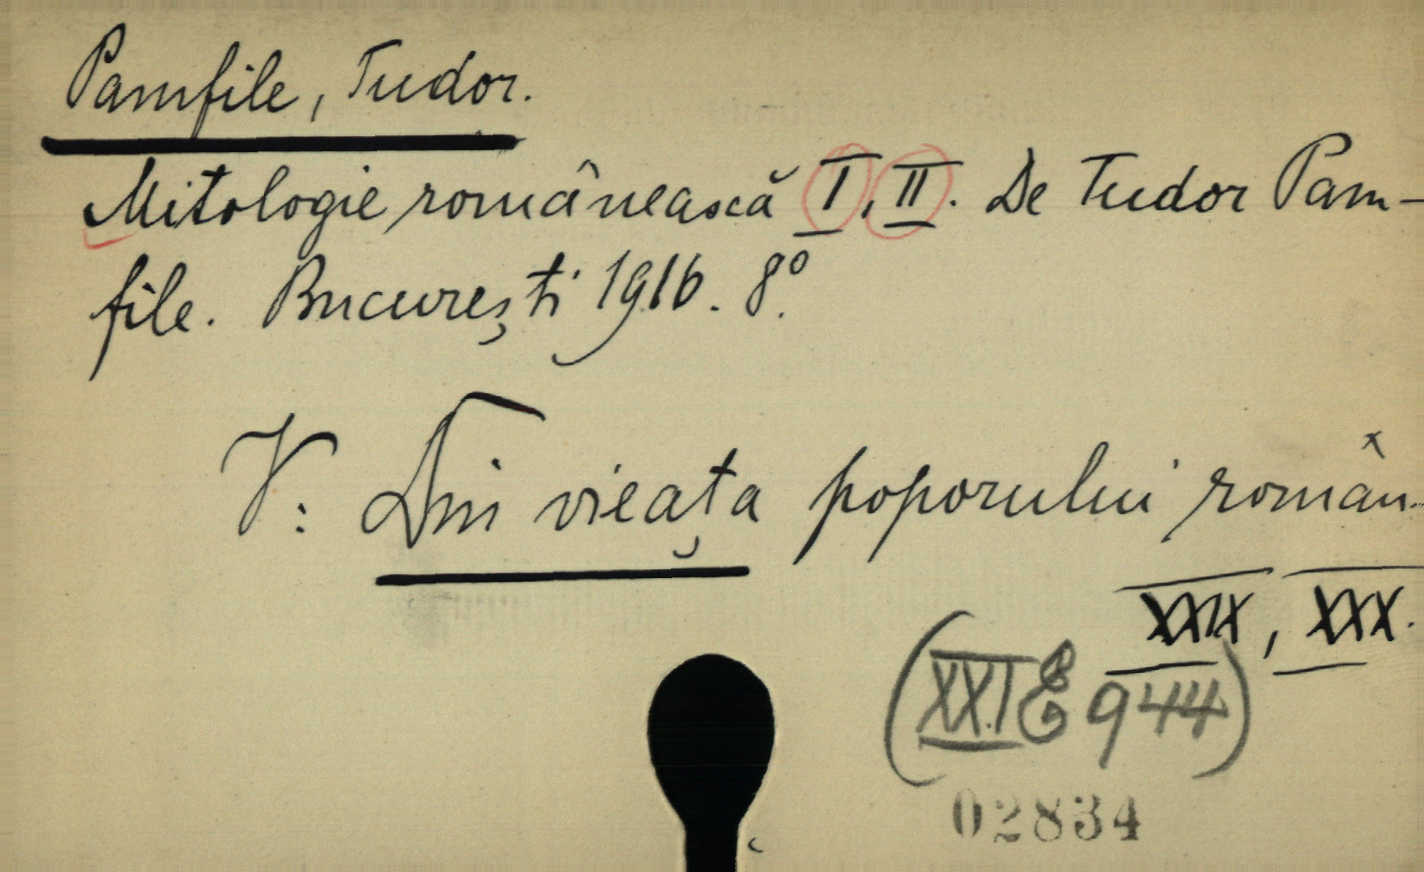 Pamfile, Tudor.
Mitologie românească I, II. De Tudor Pam-
file. București 1916. 8°.
V: Din vieața poporului român
XXIX, XXX.
(XXI E 944)
02834